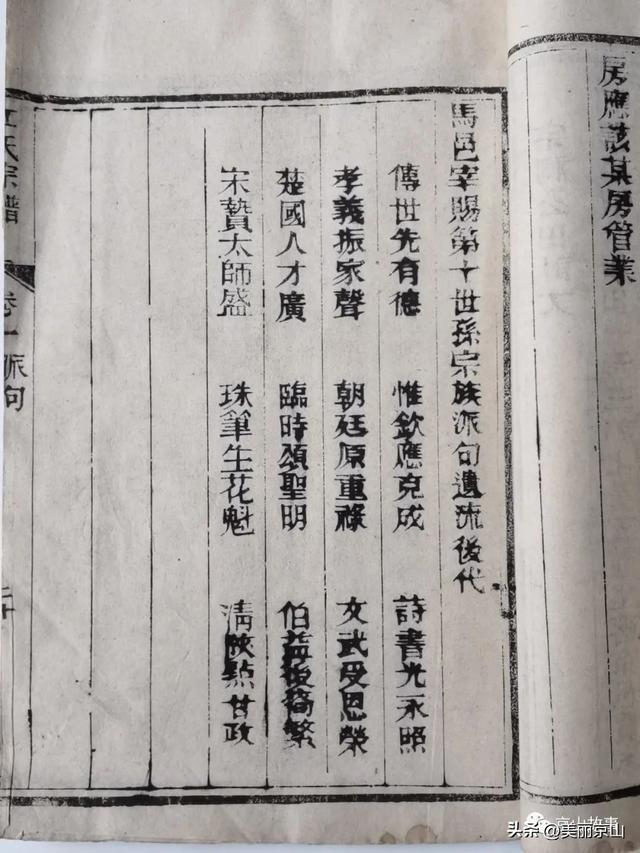 房應該某房管業
馬邑宰賜第十世孫宗族派句遺流後代
傳世先有德 惟欽應克成 詩書光永照
孝義振家聲 朝廷原重祿 文武受恩榮
楚國人才廣 臨時頌聖明 伯益後裔繁
宋贊太師盛 珠筆生花魁 清 點甘政
氏宗譜 卷一 派句
头条 @美丽京山